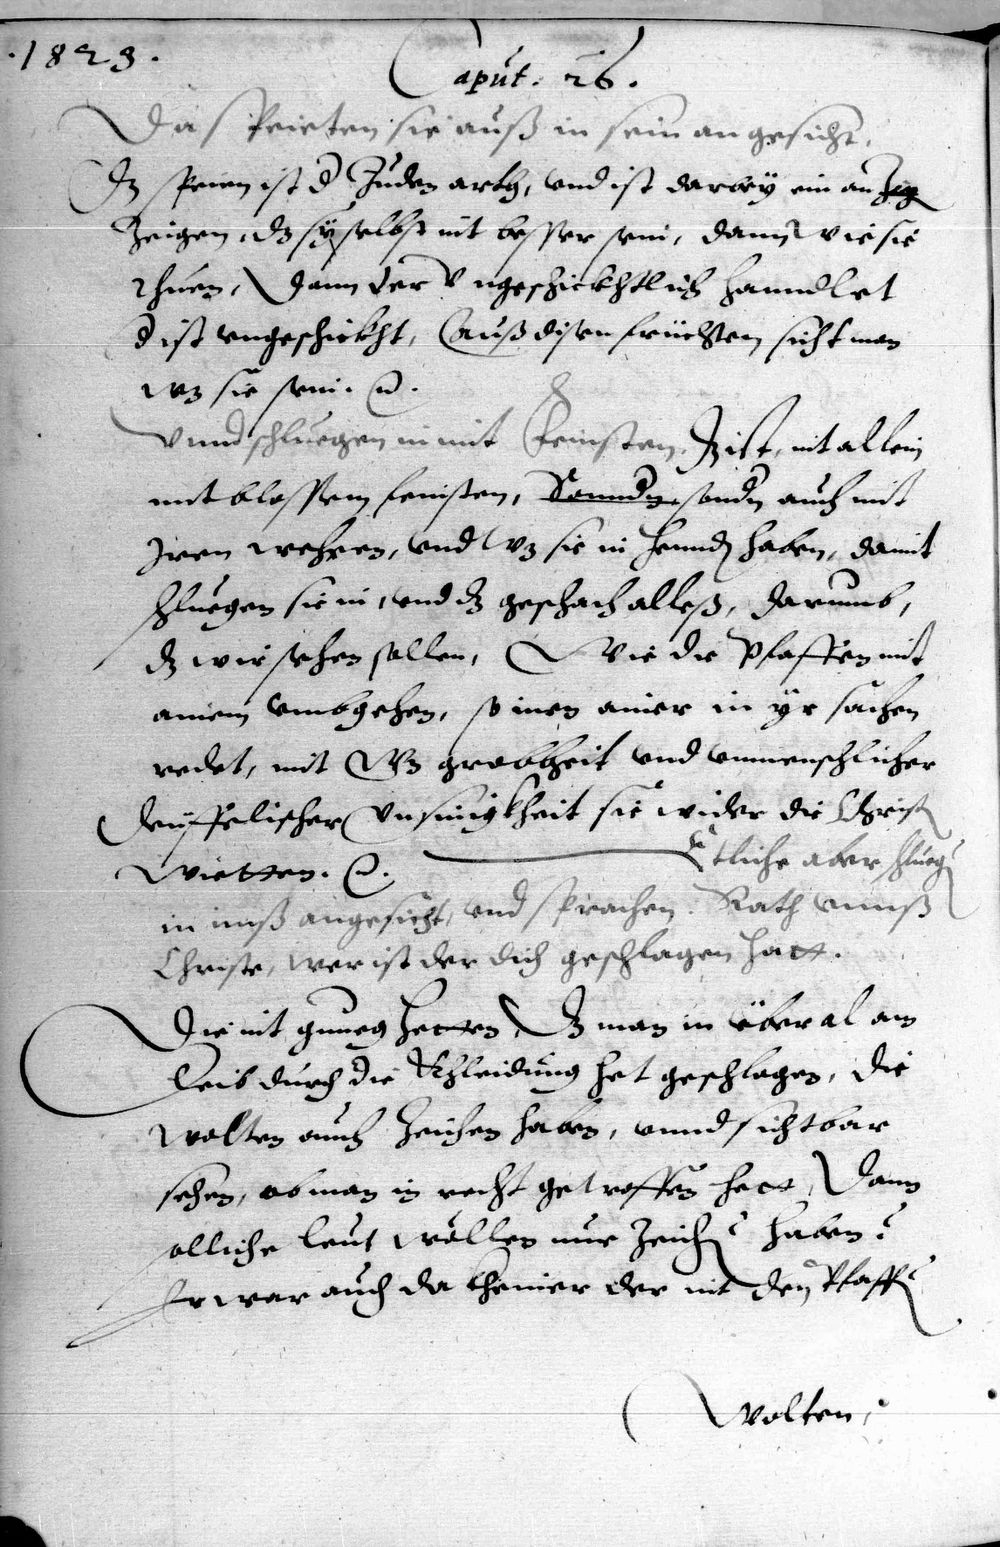 .1823.
Caput. 26.
Da speieten sie auß in sein angesicht,
Dz speien ist d Juden arth, vnd ist darbeÿ ein an
Zeigen, dz sÿ selbst nit besser sein, dann wie sie
thuen, Dann der vngeschickhtlich hanndlet
d ist vngeschickht, auß disen früchten sicht man
wz sie sein.
Vnnd schluegen in mit feüsten. Dz ist, nit allein
mit blossem feüsten, Sonndn sondn auch mit
Iren wehren, vnd wz sie in hennd haben, damit
schluegen sie in, vnd dz geschach alleß, darumb,
dz wir sehen sollen, Wie die Pfaffen mit
ainem vmbgehen, so inen ainer in ÿr sachen
redet, mit wz grobheit vnd vnmenschlicher
deüffelischer vnsinigkheit sie wider die Christ
wietten.
Etliche aber schlueg
in inß angesicht, vnd sprachen. Rath vnnß
Christe, wer ist der dich geschlagen hatt.
Die nit gnueg hetten, Dz man in überal am
Leib durch die Khleidung het geschlagen, die
wolten auch Zeichen haben, vnnd sichtbar
sehen, ob man in recht getroffen hett, Dann
solliche leut wöllen nur Zeich haben.
Er war auch da kheiner der nit den Pfaff
Wolten,